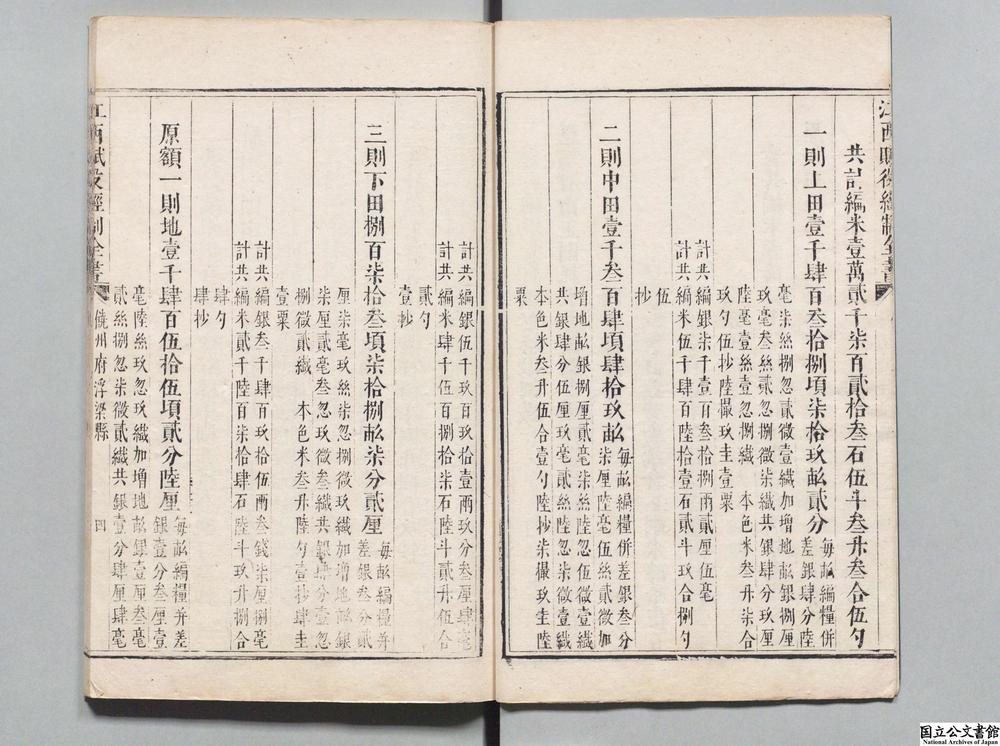 江西賦役經制全書
共計編米壹萬貳千柒百貳拾叁石伍斗叁升叁合伍勺
一則上田壹千肆百叁拾捌項柒拾玖畝貳分
每畝編糧併
差銀肆分肆厘
毫柒絲捌忽貳微壹纖加增地畝銀捌厘
玖毫叁絲貳忽捌微柒纖共銀肆分玖厘
陸毫壹絲壹忽捌纖 本色米叁升柒合
玖勺伍抄陸撮玖圭壹粟
計共
編銀柒千壹百叁拾捌兩貳厘伍毫
編米伍千肆百陸拾壹石貳斗玖合捌勺
伍抄
二則中田壹千叁百肆項肆拾玖畝
每畝編糧併差銀叁分
柒厘陸毫伍絲貳微加
增地畝銀捌厘貳毫柒絲陸忽伍微壹纖
共銀肆分伍厘玖毫貳絲陸忽柒微壹纖
本色米叁升伍合壹勺陸抄柒撮玖圭陸
粟
計共
編銀伍千玖百玖拾壹兩玖分叁厘肆毫
編米肆千伍百捌拾柒石陸斗貳升伍合
貳勺
壹抄
三則下田捌百柒拾叁項柒拾捌畝柒分貳厘
每畝編糧并
差銀叁分貳
厘柒毫玖絲柒忽捌微玖纖加增地畝銀
柒厘貳毫叁忽玖微叁纖共銀肆分壹忽
捌微貳纖 本色米叁升陸勺壹抄肆圭
壹粟
計共
編銀叁千肆百玖拾伍兩叁錢柒厘捌毫
編米貳千陸百柒拾肆石陸斗玖升捌合
肆勺
肆抄
原額一則地壹千肆百伍拾伍項貳分陸厘
每畝編糧并差
銀壹分叁厘壹
毫陸絲玖忽玖纖加增地畝銀壹厘叁毫
貳絲捌忽柒微貳纖共銀壹分肆厘肆毫
江西賦役經制全書
饒州府浮梁縣
四
国立公文書館
National Archives of Japan